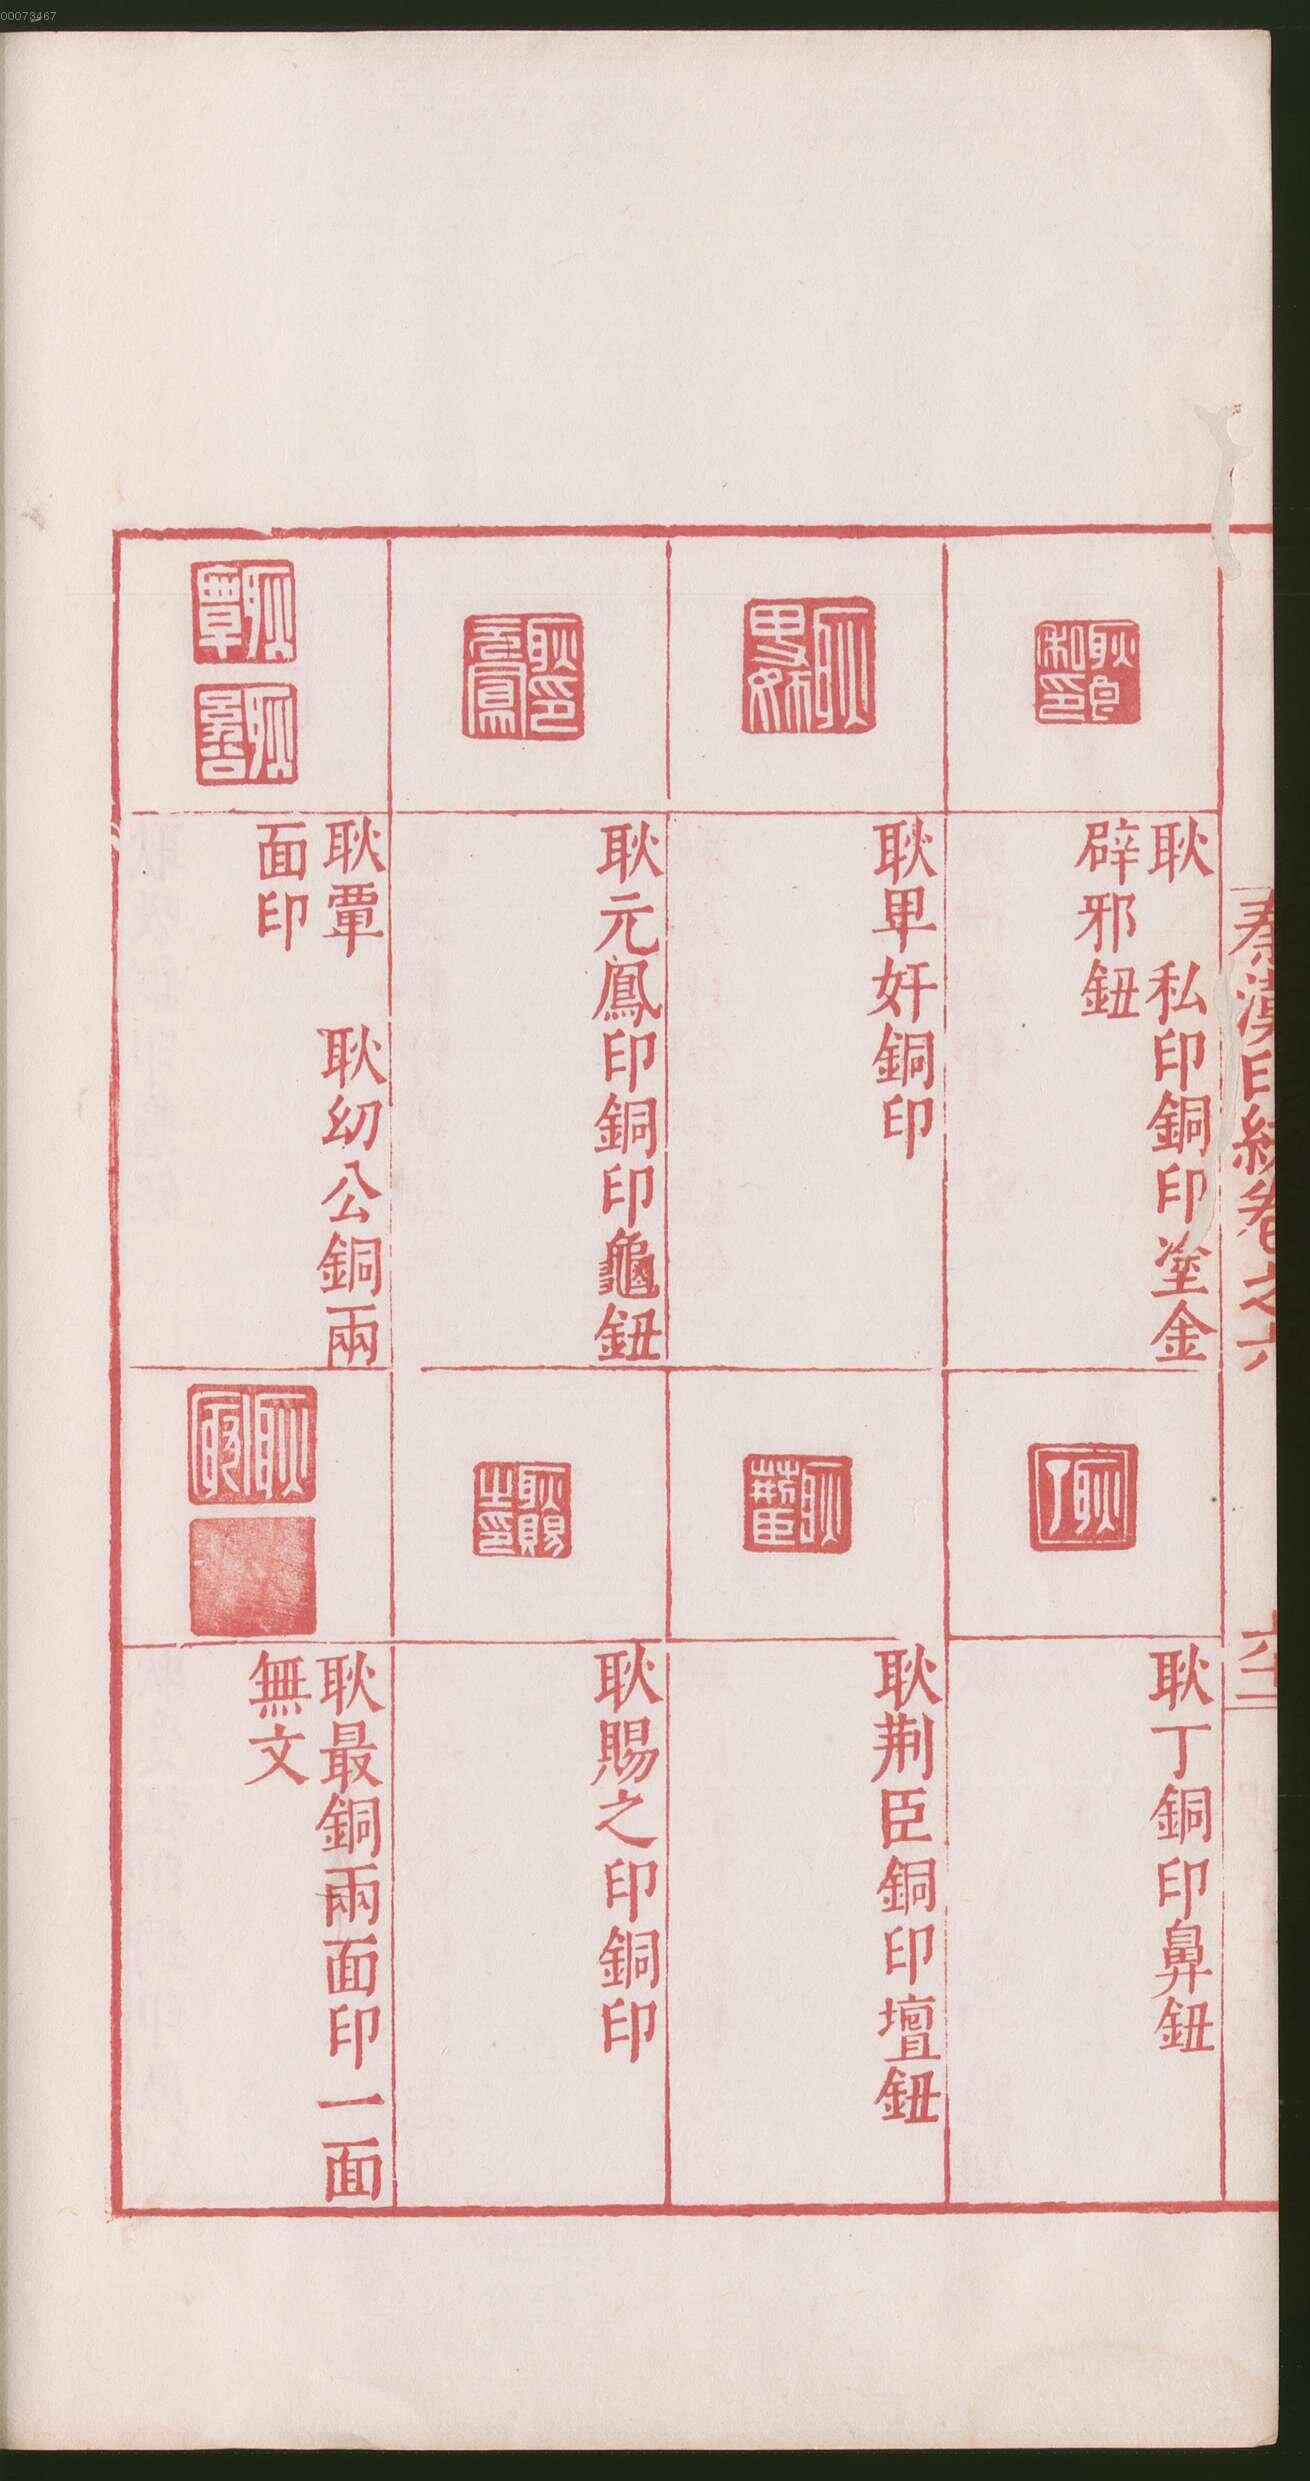 00073467
秦漢印統卷之六
耿　私印銅印塗金
辟邪鈕
耿畢奸銅印
耿元鳳印銅印龜鈕
耿覃　耿幼公銅兩
面印
耿丁銅印鼻鈕
耿荆臣銅印壇鈕
耿賜之印銅印
耿最銅兩面印一面
無文